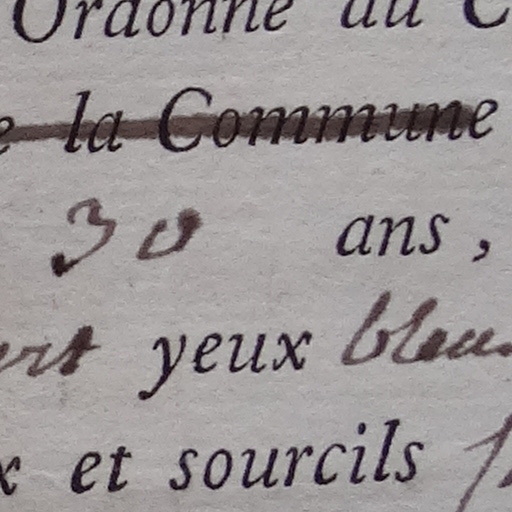 Ordonne au C
e la Commune
30 ans,
yeux bleu
x et sourcils